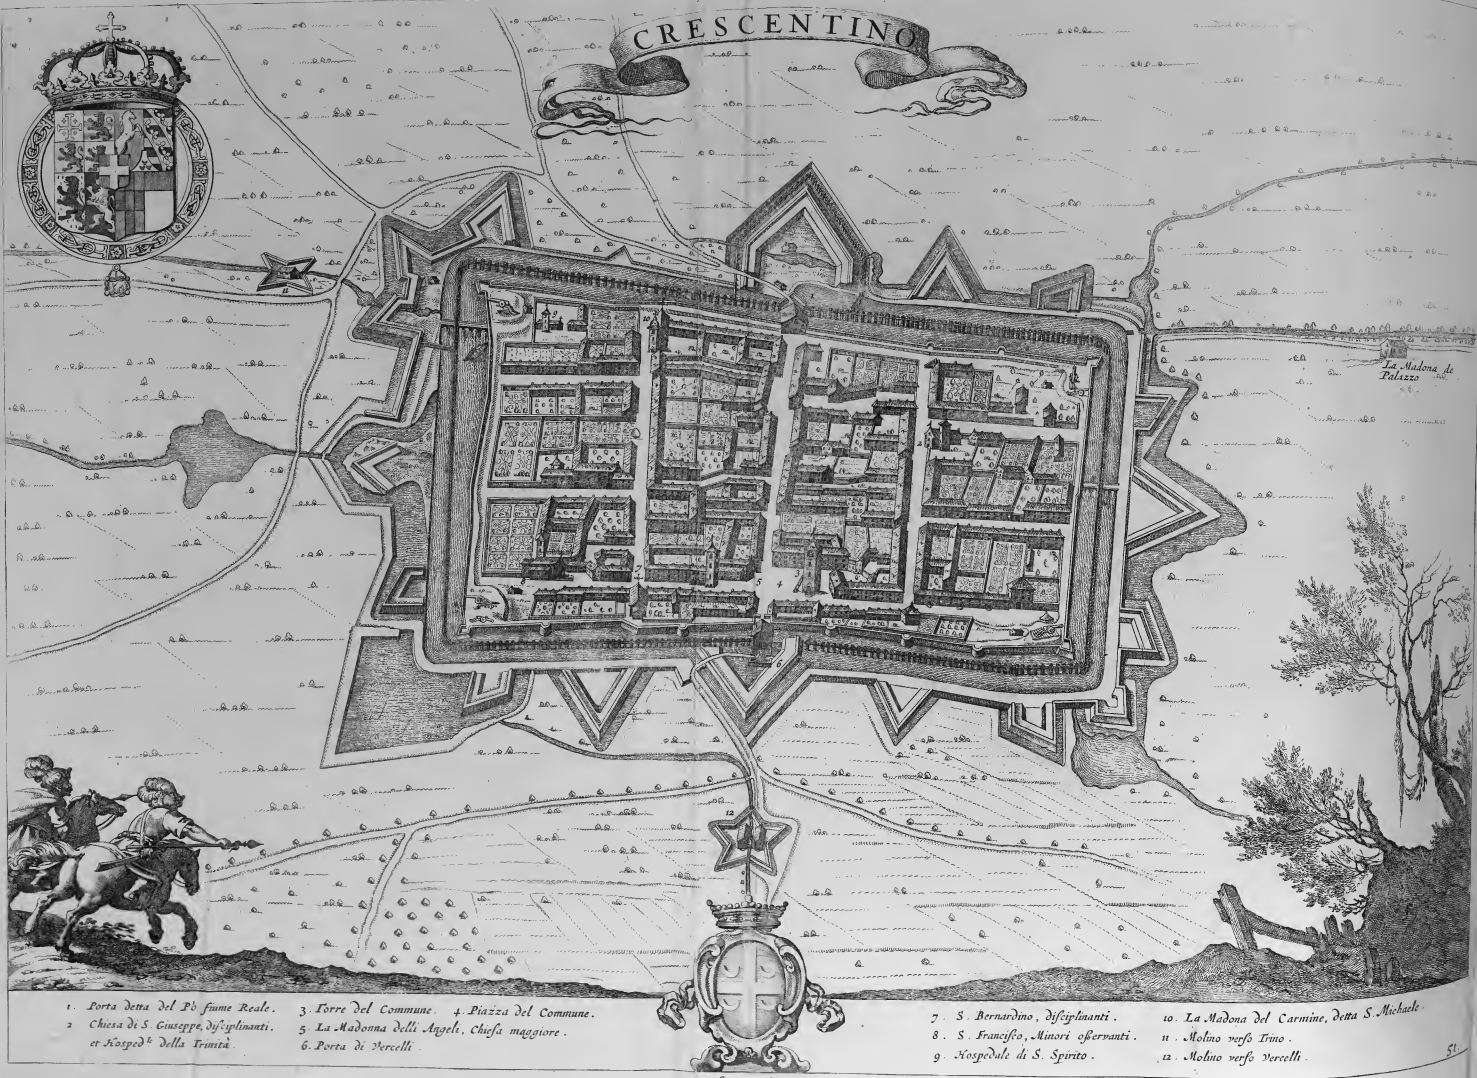 CRESCENTINO
La Madona de
Palazzo
1. Porta detta del Pò fiume Reale.
2 Chiesa di S. Giuseppe, disciplinanti.
et Hosped.le della Trinità
3. Torre del Commune. 4. Piazza del Commune.
5. La Madonna delli Angeli, Chiesa maggiore.
6. Porta di Vercelli.
7. S. Bernardino, disciplinanti.
8. S. Francisco, Minori osservanti.
9. Hospedale di S. Spirito.
10. La Madona del Carmine, detta S. Michaele.
11. Molino verso Trino.
12. Molino verso Vercelli.
51.
11
12
10
9
8
7
5
4
6